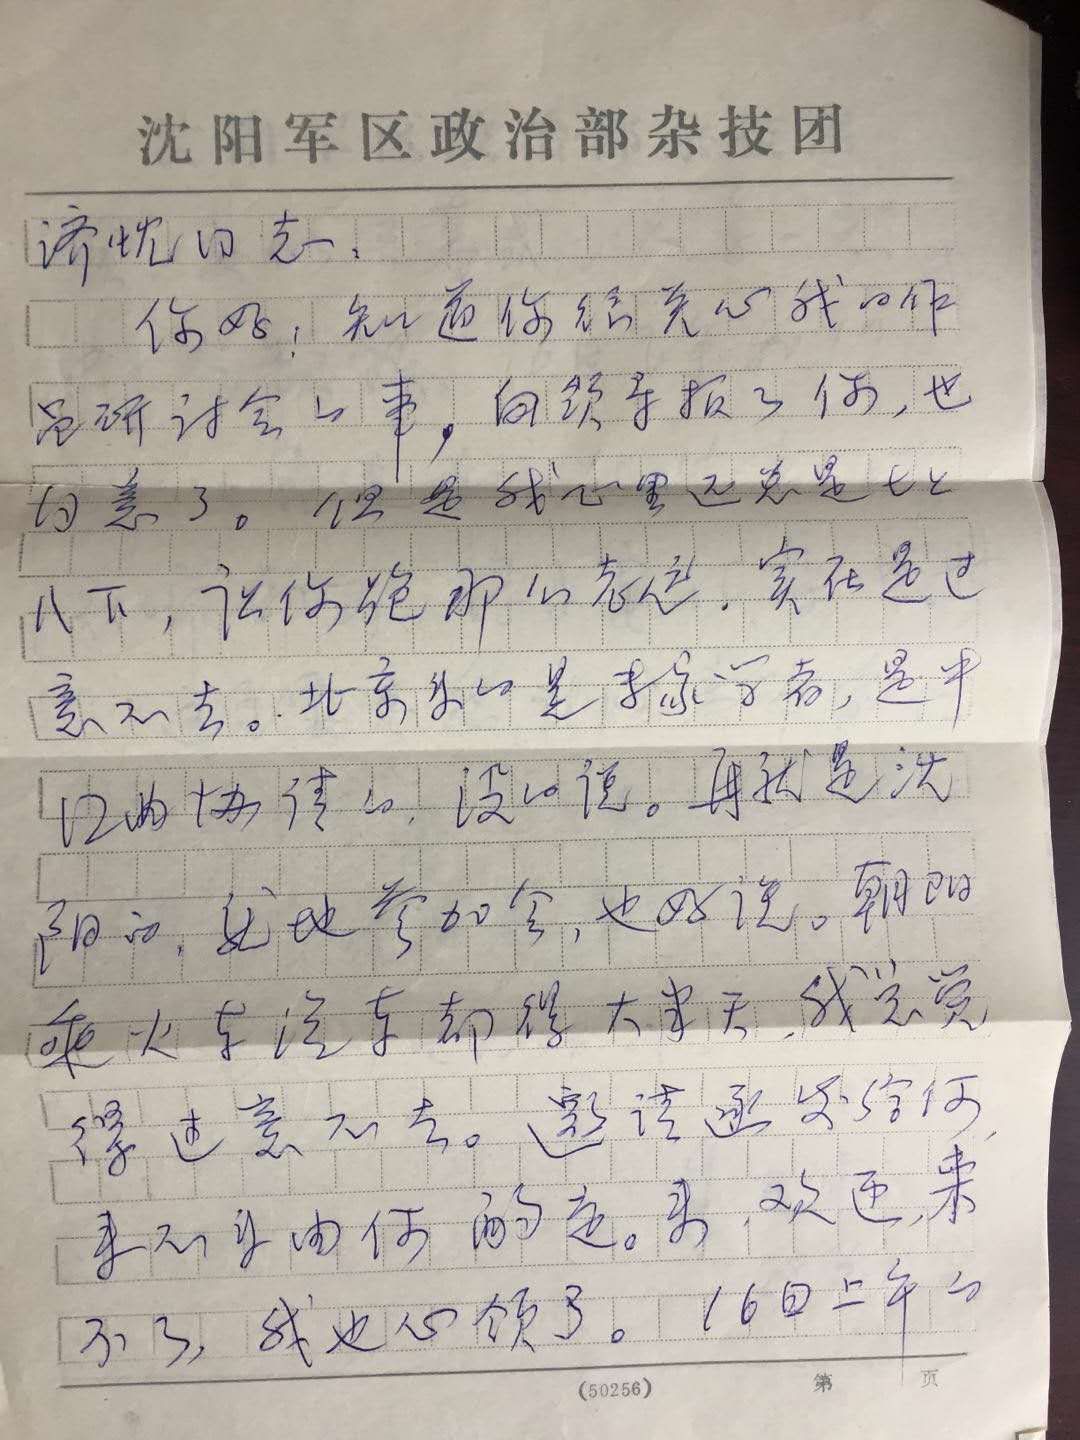 沈阳军区政治部杂技团
济忱同志:
你好!知道你给关心我的作
品研讨会的事,向领导报了你,也
同意了。但是我心里还总是七上
八下,让你跑那么老远,实在是过
意不去。北京来的是专家学者,是中
国曲协请的,没的说。再就是沈
阳的,就地参加会,也好说。朝阳
乘火车汽车都得大半天,我总觉
得过意不去。邀请函发给你,
来不来由你酌定。来,欢迎,来
不了,我也心领了。16日上午的
(50256) 第 页